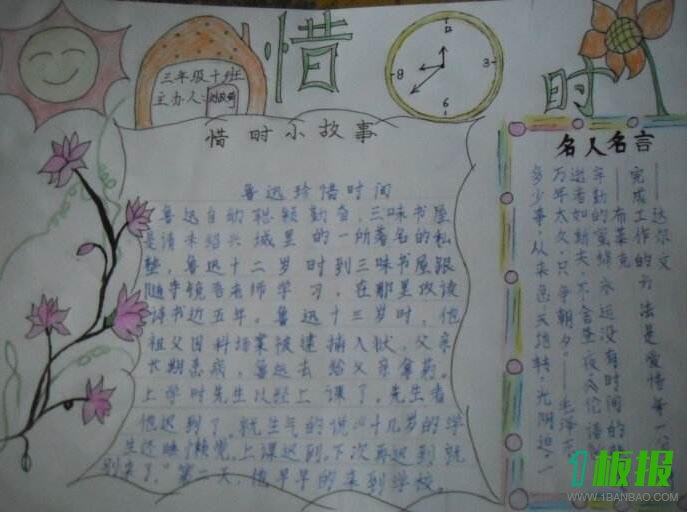 惜时
三年级十班
主办人:
3
6
惜时小故事
鲁迅珍惜时间
鲁迅自动聪颖勤奋,三味书屋
是清末绍兴城里的一所著名的私
塾,鲁迅十二岁时到三味书屋跟
随寿镜吾老师学习,在那里攻读
诗书近五年。鲁迅十三岁时,他
祖父因科场案被逮捕入狱,父亲
长期患病,鲁迅去给父亲拿药。
上学时先生以经上课了,先生看
他迟到了,就生气的说"十几岁的学
生还睡懒觉,上课迟到,下次再迟到就
别来了。"第二天,他早早的来到学校。
名人名言
多少事,从来急,天地转,光阴迫,一
万年太久,只争朝夕。——毛泽东
逝者如斯夫,不舍昼夜《论语》
年勤的蜜蜂永远没有时间的
——布莱克
完成工作的方法是爱惜每一分
——达尔文
1板报
WWW.1BANBAO.COM